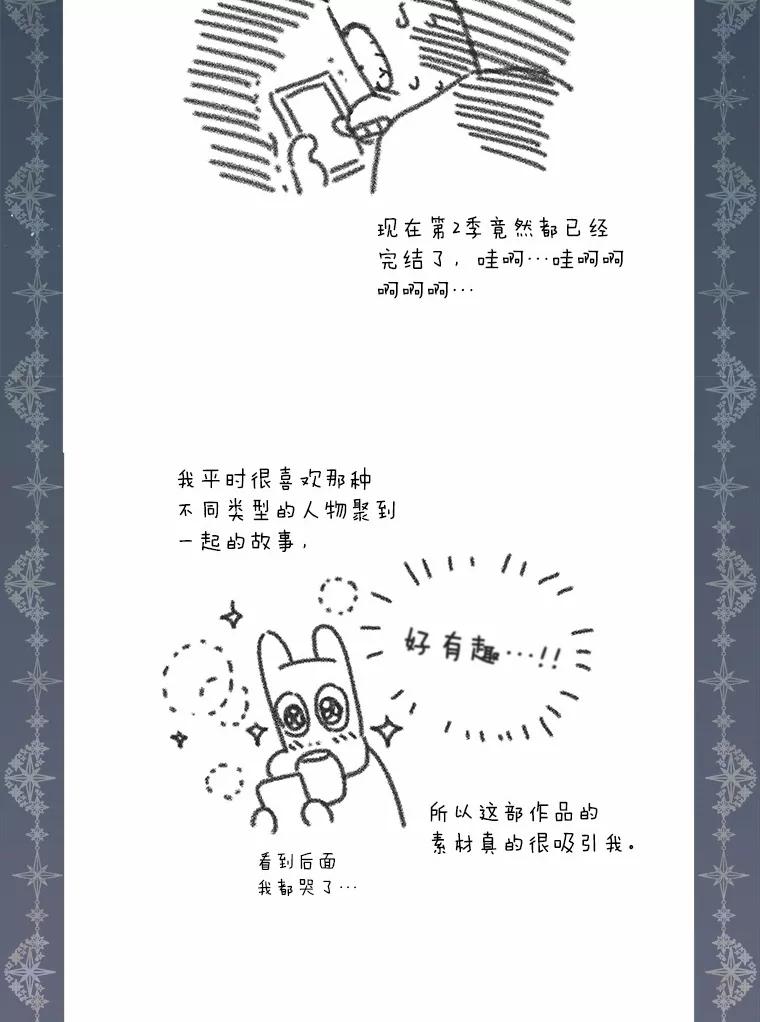 现在第2季竟然都已经
完结了，哇啊…哇啊啊
啊啊啊…
我平时很喜欢那种
不同类型的人物聚到
一起的故事，
好有趣…!!
所以这部作品的
素材真的很吸引我。
看到后面
我都哭了…